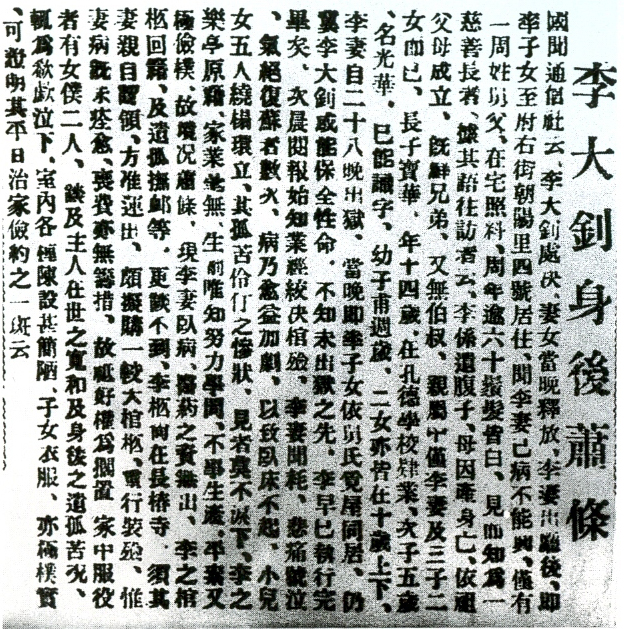 李大釗身後蕭條
國聞通信社云、李大釗處决、妻女當晚釋放、李妻出廳後、即
率子女至府右街朝陽里四號居住、聞李妻已病不能興、僅有
一周姓舅父、在宅照料、周年逾六十鬚髮皆白、見而知為一
慈善長者、據其語往訪者云、李係遺腹子、母因產身亡、依祖
父母成立、旣鮮兄弟、又無伯叔、親屬中僅李妻及三子二
女而已、長子寶華、年十四歲、在孔德學校肄業、次子五歲
、名光華、已能識字、幼子甫週歲、二女亦皆在十歲上下、
李妻自二十八晚出獄、當晚即率子女依舅氏覓屋同居、仍
冀李大釗或能保全性命、不知未出獄之先、李早已執行完
畢矣、次晨閱報始知業經絞决棺殮、李妻聞耗、悲痛號泣
、氣絕復蘇者數次、病乃愈益加劇、以致臥床不起、小兒
女五人繞榻環立、其孤苦伶仃之慘狀、見者莫不淚下、李之
樂亭原籍、家業毫無、生前唯知努力學問、不事生產、平素又
極儉樸、故境况蕭條、現李妻臥病、醫藥之資無出、李之棺
柩回籍、及遺孤撫卹等、更談不到、李柩尚在長椿寺、須其
妻親自認領、方准運出、頗擬購一較大棺柩、重行裝殮、惟
妻病旣未痊愈、喪費亦無籌措、故祇好權為擱置 家中服役
者有女僕二人、談及主人在世之寬和及身後之遺孤苦况、
輒為欷歔泣下、室內各種陳設甚簡陋、子女衣服、亦極樸實
、可證明其平日治家儉約之一斑云